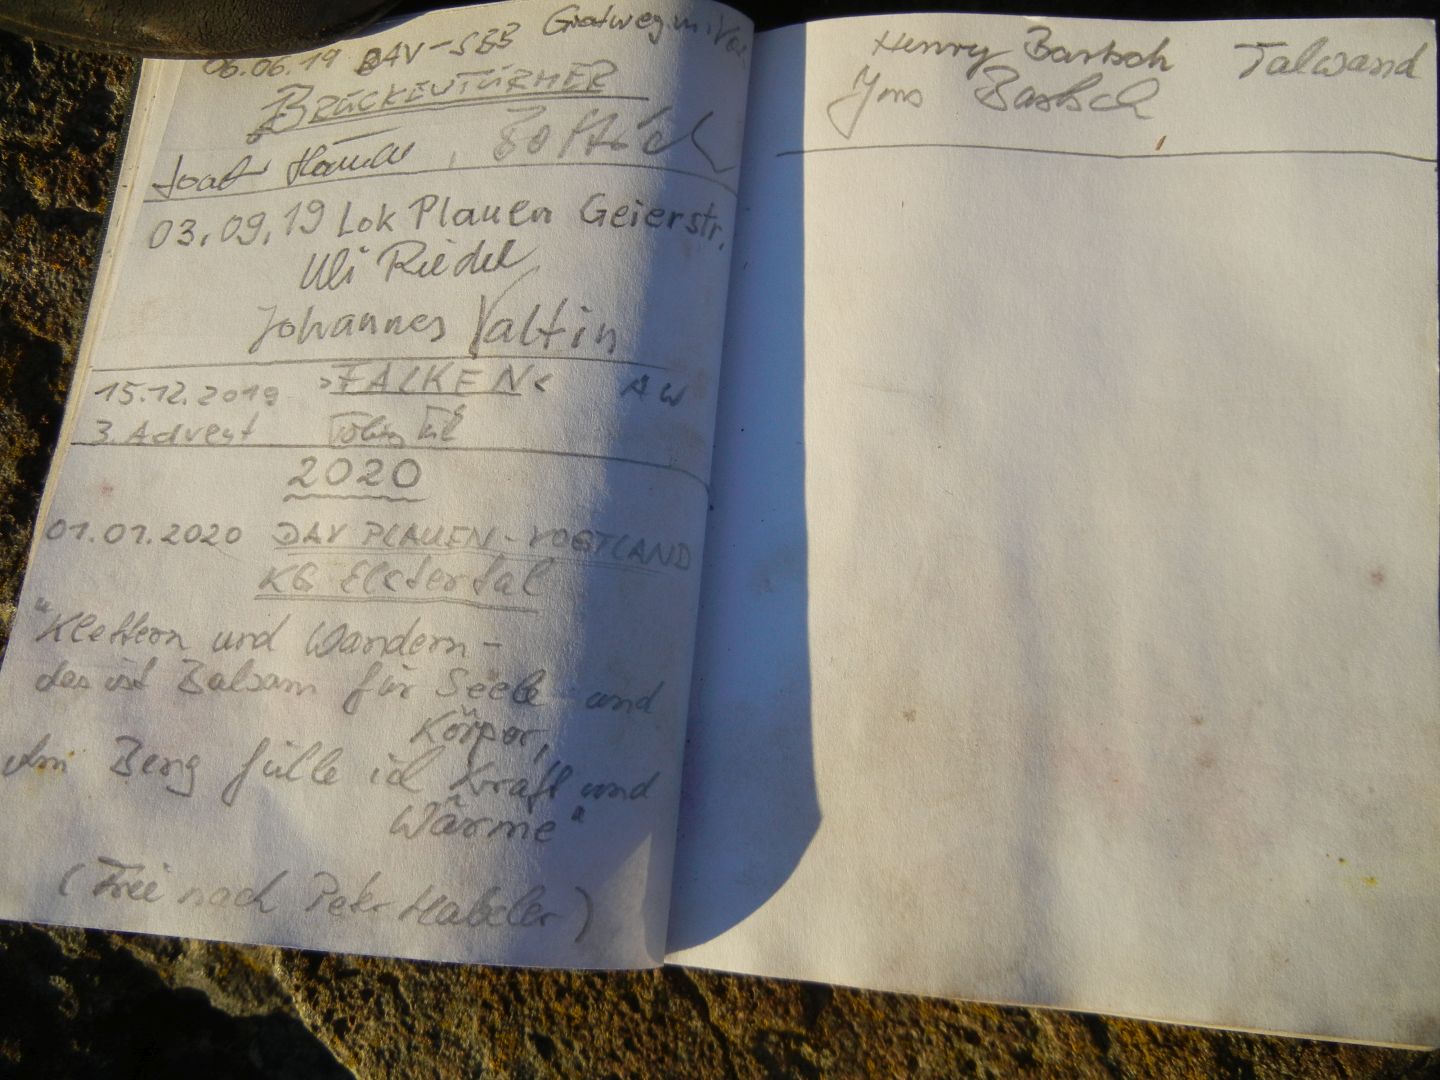 06.06.19 DAV-SBB Gratweg m. Var.
BRÜCKENTÜRMER
03.09.19 Lok Plauen Geierstr.
Uli Riedel
Johannes Valtin
15.12.2019 >FALKEN< AW
3. Advent
2020
01.01.2020 DAV PLAUEN-VOGTLAND
KG Elstertal
"Klettern und Wandern-
das ist Balsam für Seele und
Körper,
Am Berg fülle ich Kraft und
Wärme"
(Frei nach Peter Habeler)
Henry Bartsch Talwand
Jens Bartsch